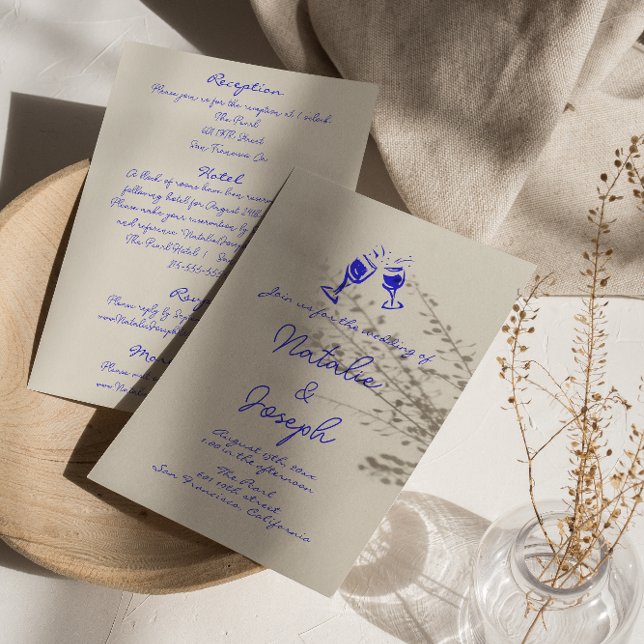 Reception
Please join us for the reception at 1 o'clock
The Pearl
601 19th Street
San Francisco, Ca
Hotel
A block of rooms have been reserved
following hotel for August 24th
Please make your reservation by
and reference "Natalie
The Pearl Hotel | San
215-555-555
Please reply by
Please visit
Join us for the wedding of
Natalie
&
Joseph
August 15th, 20xx
1:00 in the afternoon
The Pearl
601 19th street
San Francisco, California